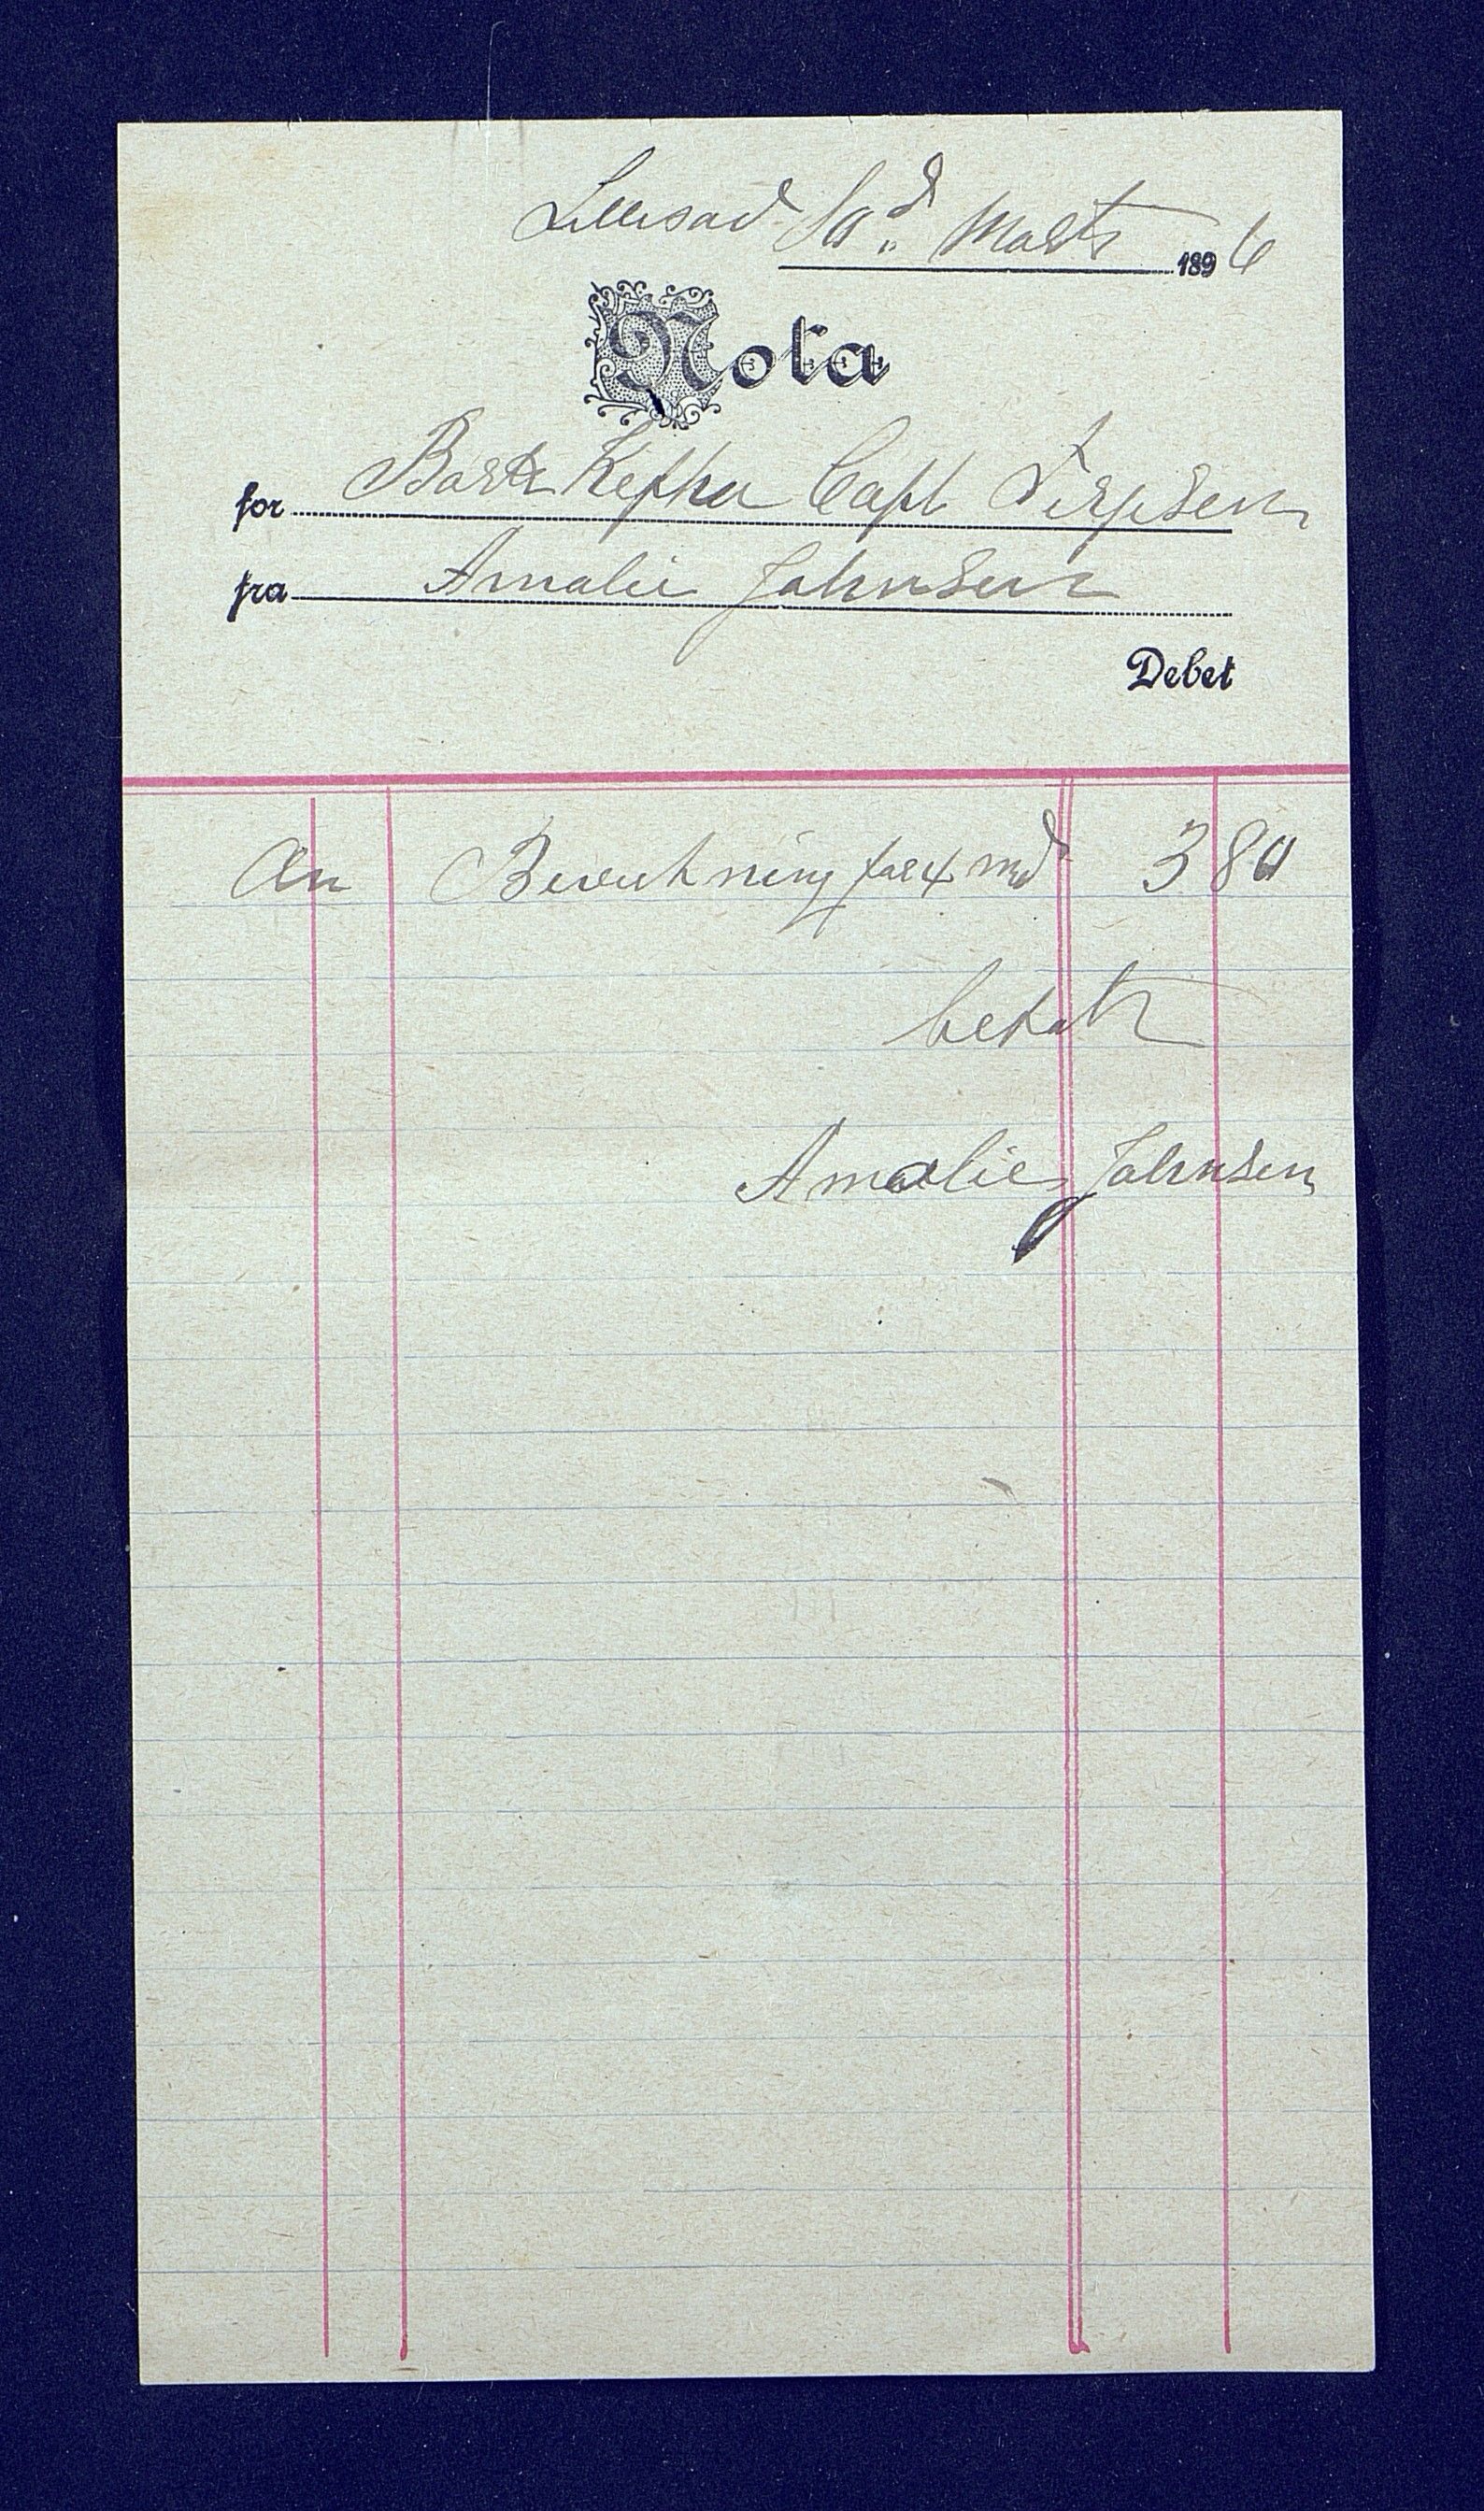 Lillesand 10d. Marts 1896
Nota
for Bark Kepha Capt Terjesen
fra Amalie Jahnsen
Debet
An Bevertning for 4 md 3 80
betalt
Amalie Jahnsen